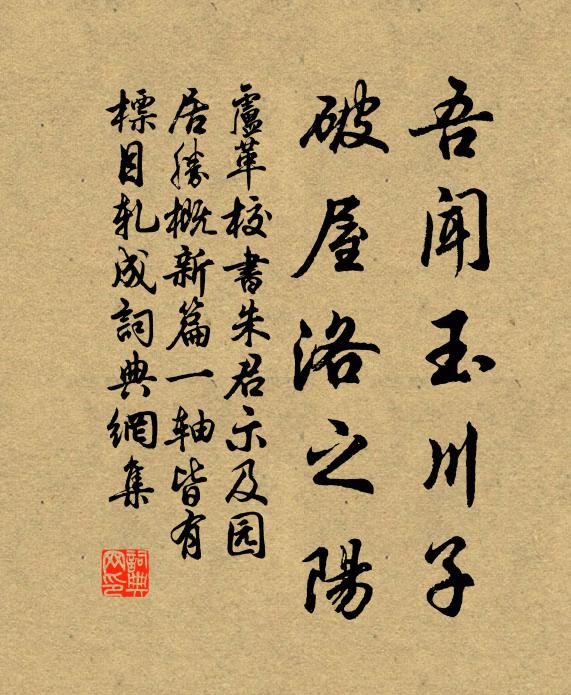 吾聞玉川子
破屋洛之陽
盧革校書朱君示及园
居勝概新篇一軸皆有
標目軋成詞典網集
詞典網印